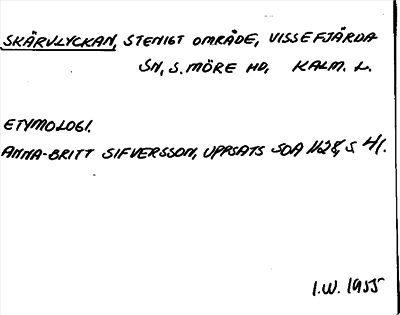 SKÄRVLYCKAN, STENIGT OMRÅDE, VISSEFJÄRDA
SN, S. MÖRE HD, KALM. L.
ETYMOLOGI.
ANNA-BRITT SIFVERSSON, UPPSATS SOA 1628, S 41.
I.W. 1955